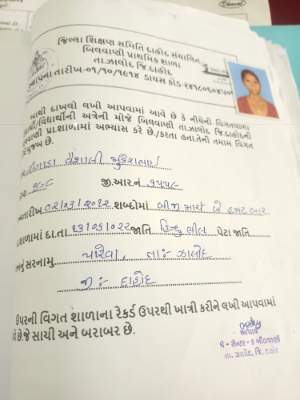 જિલ્લા શિક્ષણ સમિતિ દાહોદ સંચાલિત
બિલવાણી પ્રાથમિક શાળા
તા.ઝાલોદ જિ.દાહોદ
સ્થાપના તારીખ-૦૧/૧૦/૧૯૧૪ ડાયસ કોડ
ખાત્રી દાખલો લખી આપવામાં આવે છે કે નીચેની વિગતવાળા
વિદ્યાર્થીની અત્રેની મોજે બિલવાણી તા.ઝાલોદ જિ.દાહોદની
પ્રા.શાળામાં અભ્યાસ કરે છે./કરતા હતા.તેની તમામ વિગત
મુજબ છે.
વૈશાલી મુકેશભાઈ
જી.આર.નં ૩૫૫૯
તારીખ ૦૨/૦૩/૨૦૧૨ શબ્દોમાં બીજી માર્ચ બે હજાર બાર
શાળામાં દા.તા. ૨૩/૦૬/૦૨૨ જાતિ હિન્દુ ભીલ પેટા જાતિ
સરનામુ તા:- ઝાલોદ
જી:- દાહોદ
ઉપરની વિગત શાળાના રેકર્ડ ઉપરથી ખાત્રી કરીને લખી આપવામાં
છે.જે સાચી અને બરાબર છે.
તા. ઝાલોદ, જિ. દાહોદ